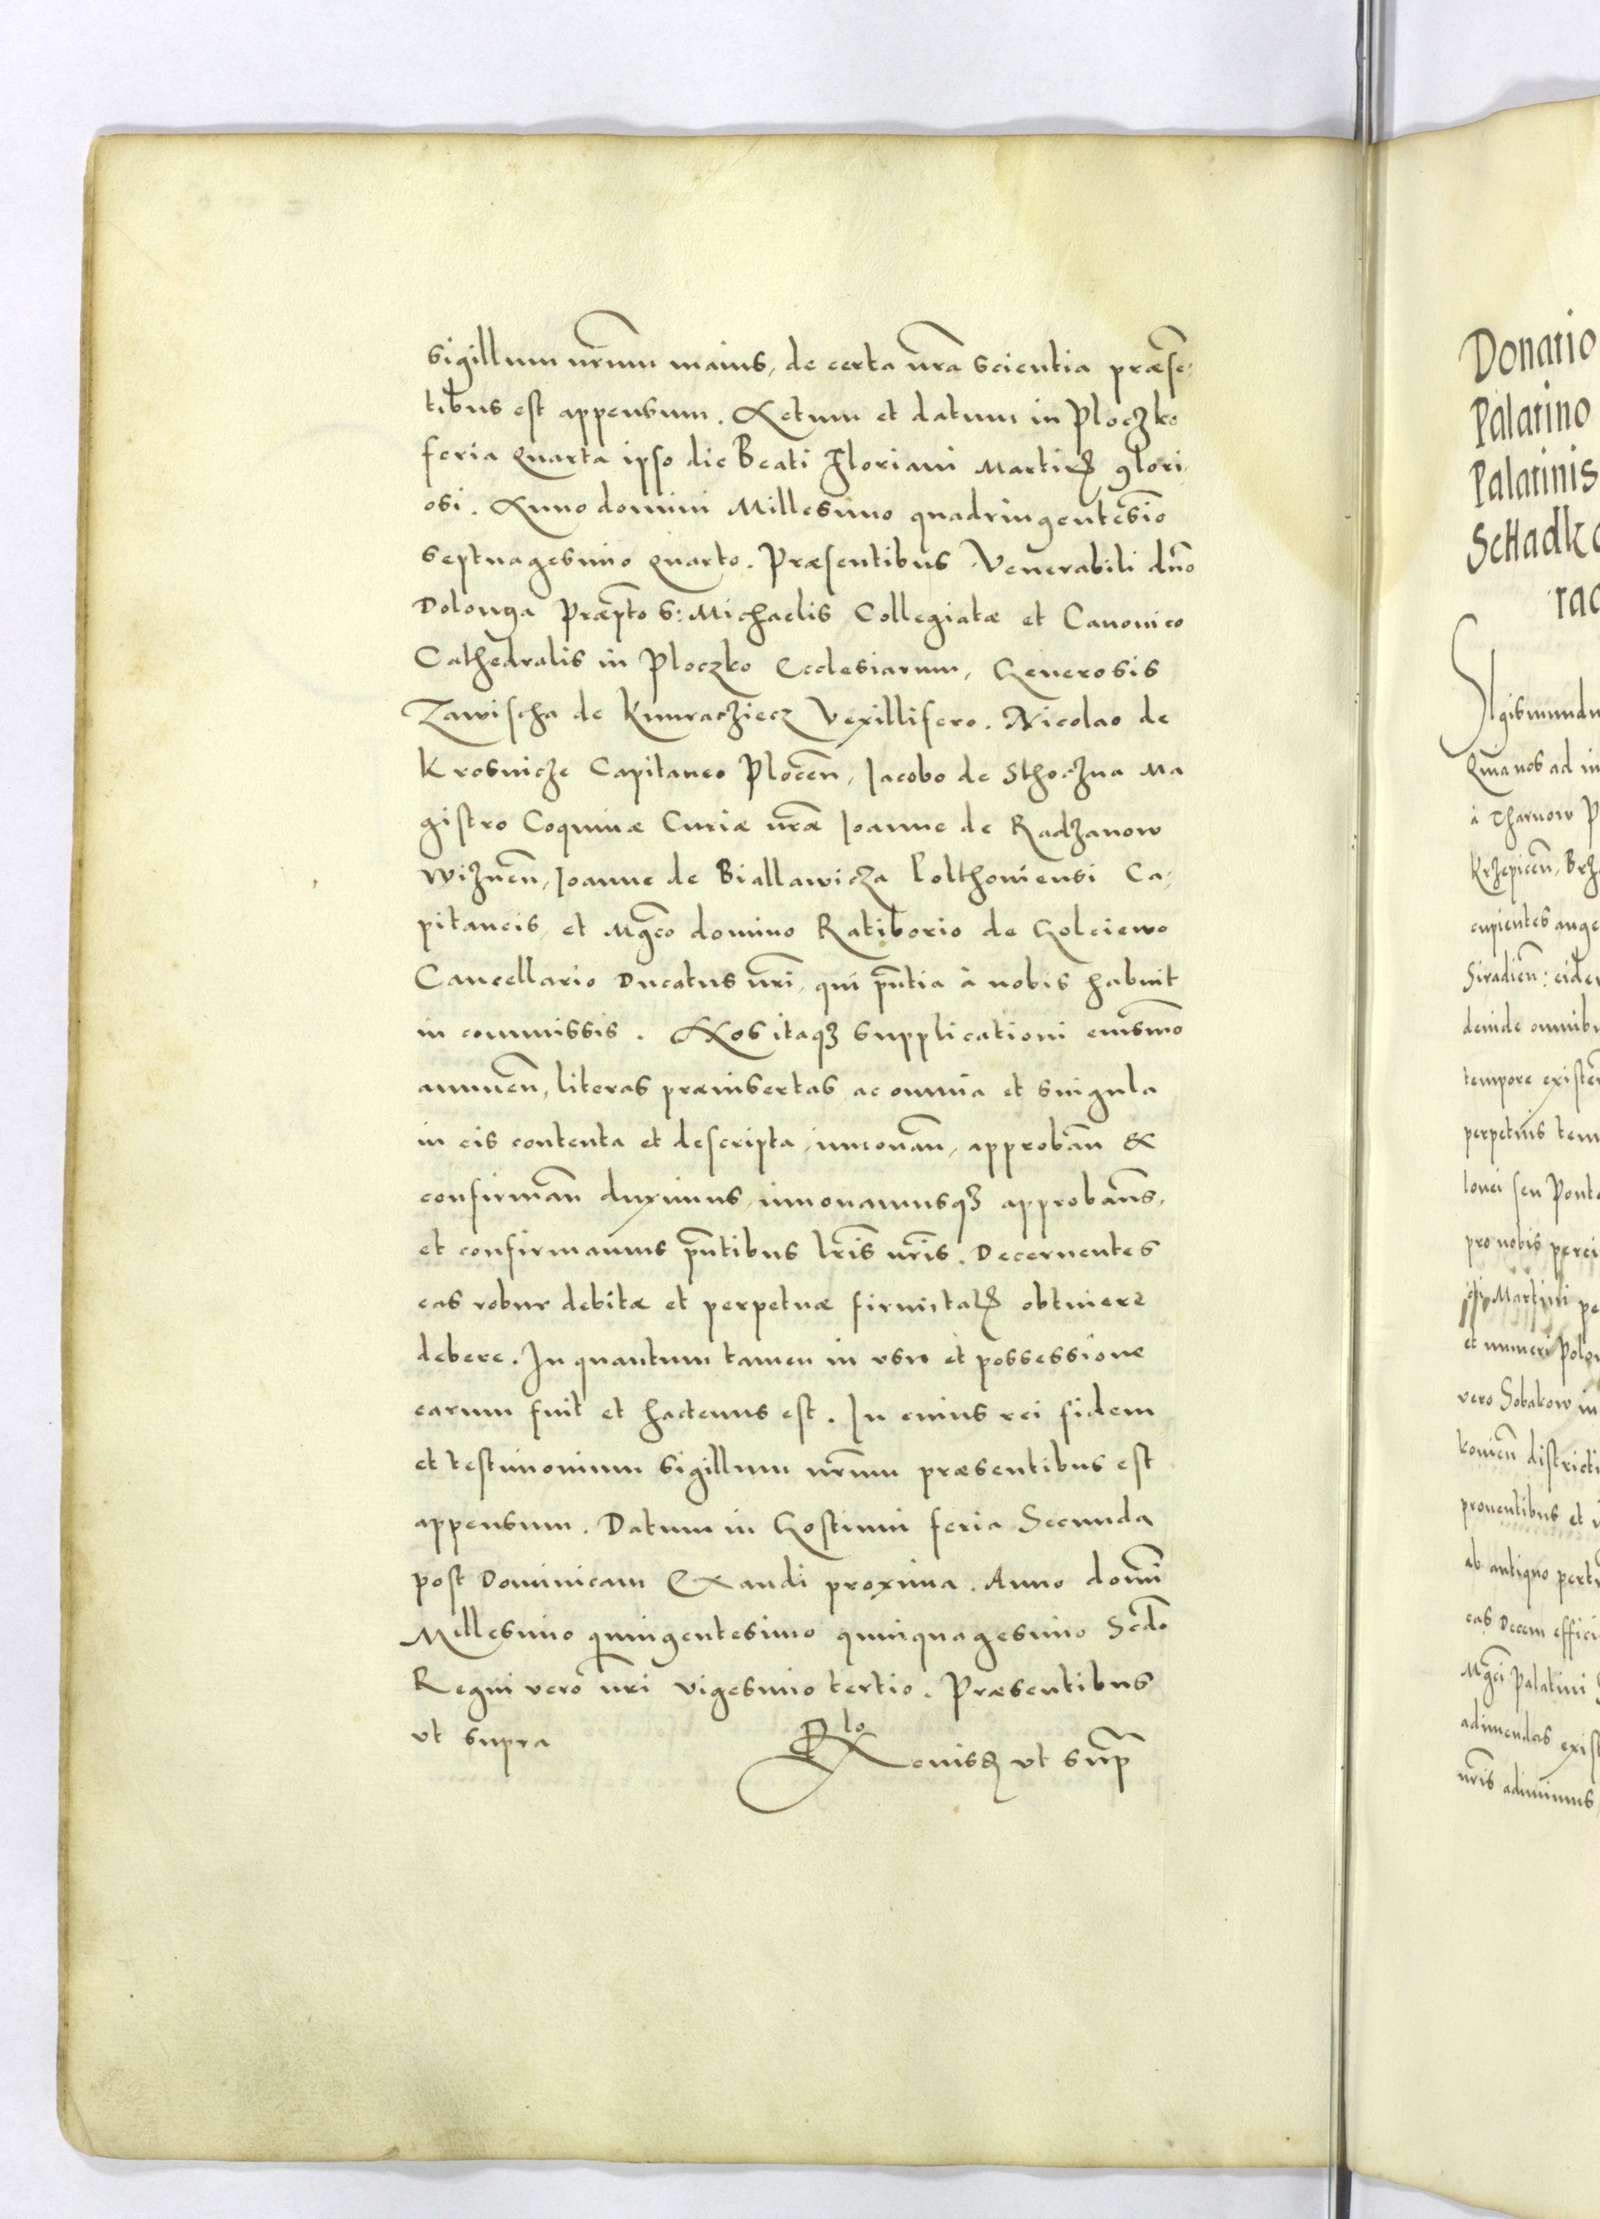 sigillum nr̃um maius, de certa nr̃a scientia præsẽ-
tibus est appensum. Actum et datum in Ploczko
feria quarta ipso die Beati Floriani Martiris glori-
osi. Anno domini Millesimo quadringentesĩo
septuagesimo quarto. Præsentibus Venerabili dño
Dolonga Præpto s: Michaelis Collegiatæ et Canonico
Cathedralis in Ploczko Ecclesiarum, Generosis
Zawischa de Kunracziecz Vexillifero. Nicolao de
Krosnicze Capitaneo Plocẽn, Jacobo de Sthoczna Ma
gistro Coquinæ Curiæ nr̃æ Joanne de Radzanow
Wiznẽn, Joanne de Biallawicza Polthoviensi Ca-
pitaneis, et Mgc̃o domino Ratiborio de Golciewo
Cancellario Ducatus nr̃i, qui pñtia à nobis habuit
in commissis. Nos itaqꝫ supplicationi eiusmõ
annuẽn, literas præinsertas ac omnia et singula
in eis contenta et descripta, innovañ, approbañ &
confirmañ duximus, innovamusqꝫ approbam̃s,
et confirmamus pñtibus lr̃is nr̃is. Decernentes
eas robur debitæ et perpetuæ firmitatis obtinere
debere. In quantum tamen in vsu et possessione
earum fuit et hactenus est. In cuius rei fidem
et testimonium sigillum nr̃um præsentibus est
appensum. Datum in Gostinin feria Secunda
post Dominicam Exaudi proxima. Anno domĩ
Millesimo quingentesimo quinquagesimo Scđo
Regni vero nr̃i vigesimo tertio. Præsentibus
vt supra
Rlo vt sup̃
Donatio
Palatino
Palatinis
Schadko
rac
Sigismundu
Quia nos ad in
à Tharnow P
Krzepicẽn, Brz
cupientes auge
Siradieñ: eide
deinde omnibu
tempore existẽ
perpetuis tem
lonei seu Ponte
pro nobis perci
Martini pe
et numeri Polon
vero Sobakow in
districti
proventibus et
ab antiquo pert
eas Decem effici
Mgc̃i Palatini
adimendas exist
nr̃is adimimus,